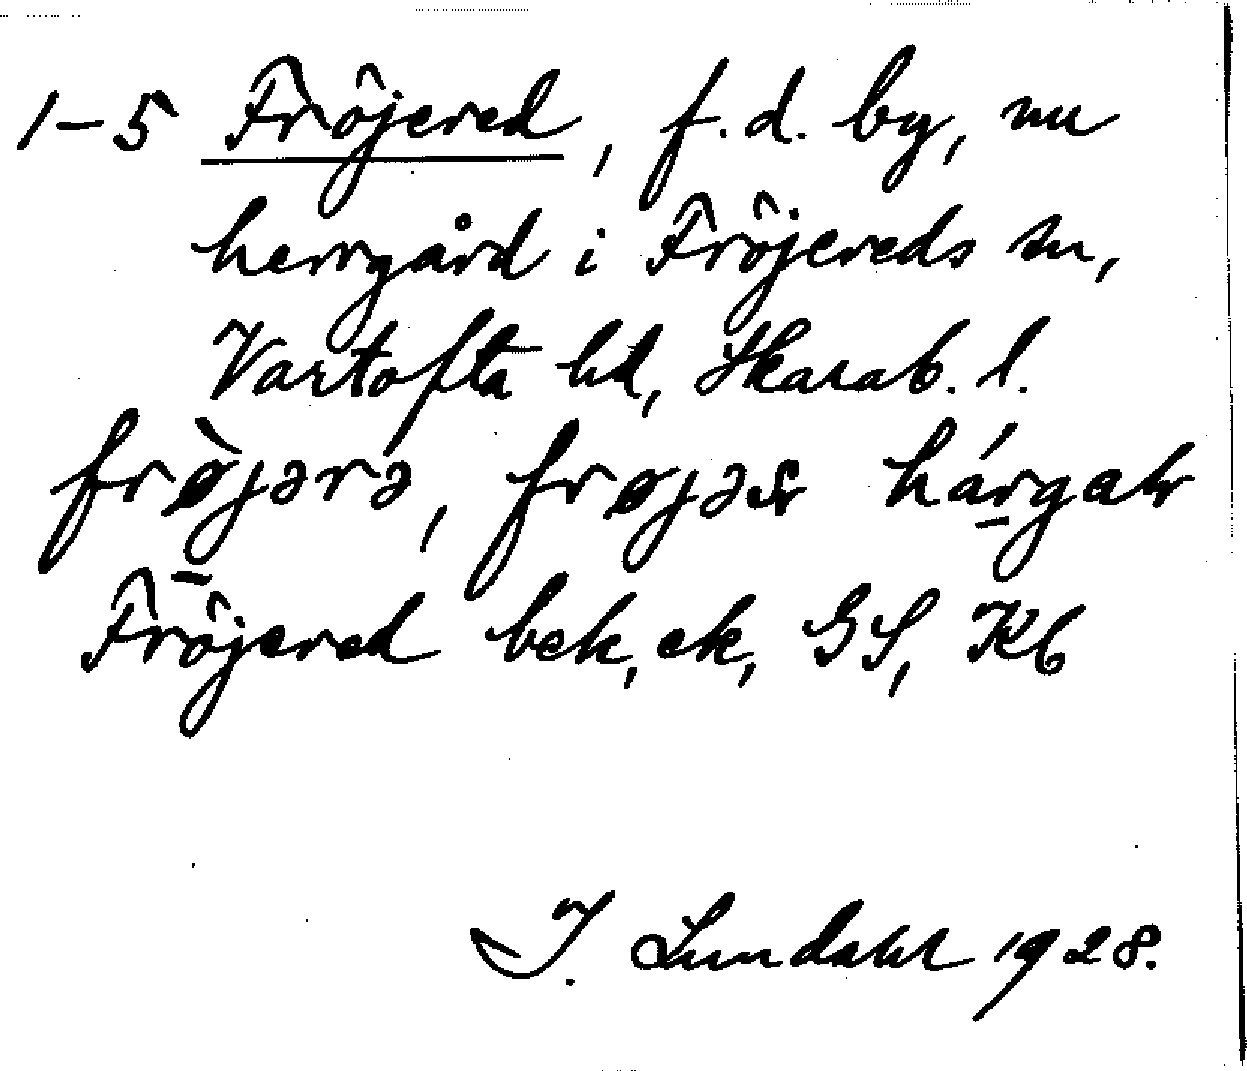 1–5 Fröjered, f.d. by, nu
herrgård i Fröjereds sn,
Vartofta hd, Skarab. l.
frø̀jərə, frøjəs hárgaḷr
Fröjered bek, ek, GS, Kb
I. Lundahl 1928.